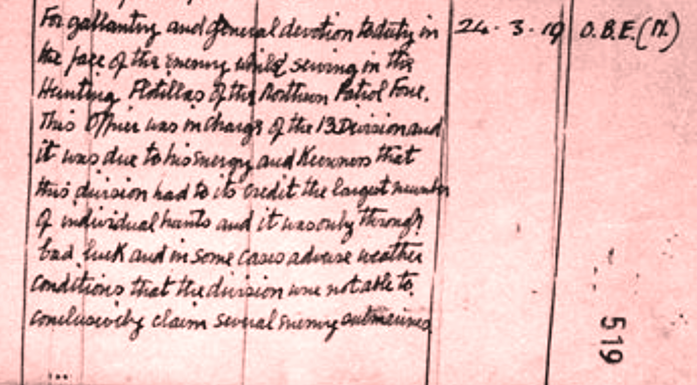 For gallantry and general devotion to duty in 24 - 3 - 19 O.B.E. (M.)
the face of the enemy whilst serving in the
Hunting Flotillas of the Northern Patrol Force.
This Officer was in charge of the 13 Division and
it was due to his energy and Keenness that
this division had to its credit the largest number
of individual hunts and it was only through
bad luck and in some cases adverse weather
conditions that the division were not able to
conclusively claim several enemy submarines
519